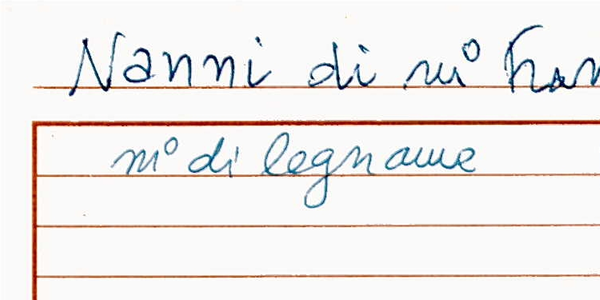 Nanni di mº Fran
mº di legname